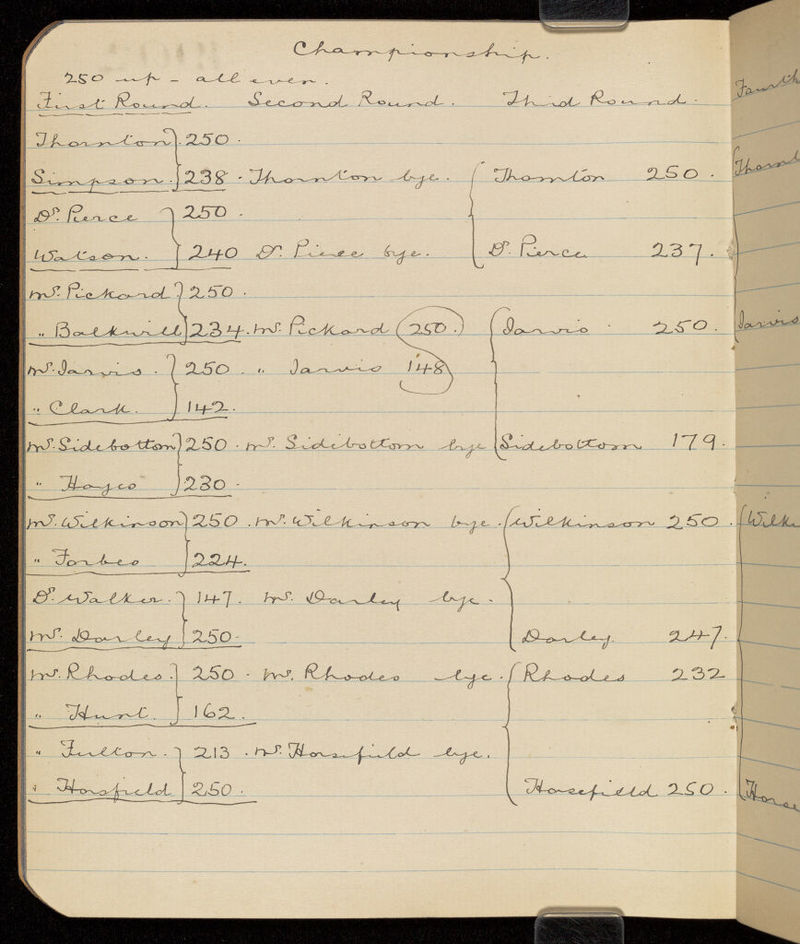 Championship.
250 up - all even.
First Round. Second Round. Third Round.
Thornton 250.
Simpson. 238. Thornton bye. Thornton 250.
Dr. Pierce 250.
Watson. 240 Dr. Pierce bye. Dr. Pierce 237.
Mr. Pickard 250.
" Balkwill 234. Mr. Pickard 250. Jarvis 250. Jarvis
Mr. Jarvis. 250. " Jarvis 148
" Clark. 142.
Mr. Sidebottom 250. Mr. Sidebottom bye Sidebottom 179.
" Hayes 230.
Mr. Wilkinson 250. Mr. Wilkinson bye. Wilkinson 250.
" Forbes 224.
Dr. Walker. 147. Mr. Darley bye.
Mr. Darley 250. Darley. 247.
Mr. Rhodes. 250. Mr. Rhodes bye. Rhodes 232
" Hunt. 162.
" Fulton. 213. Mr. Horsefield bye.
" Horsfield 250. Horsefield 250.